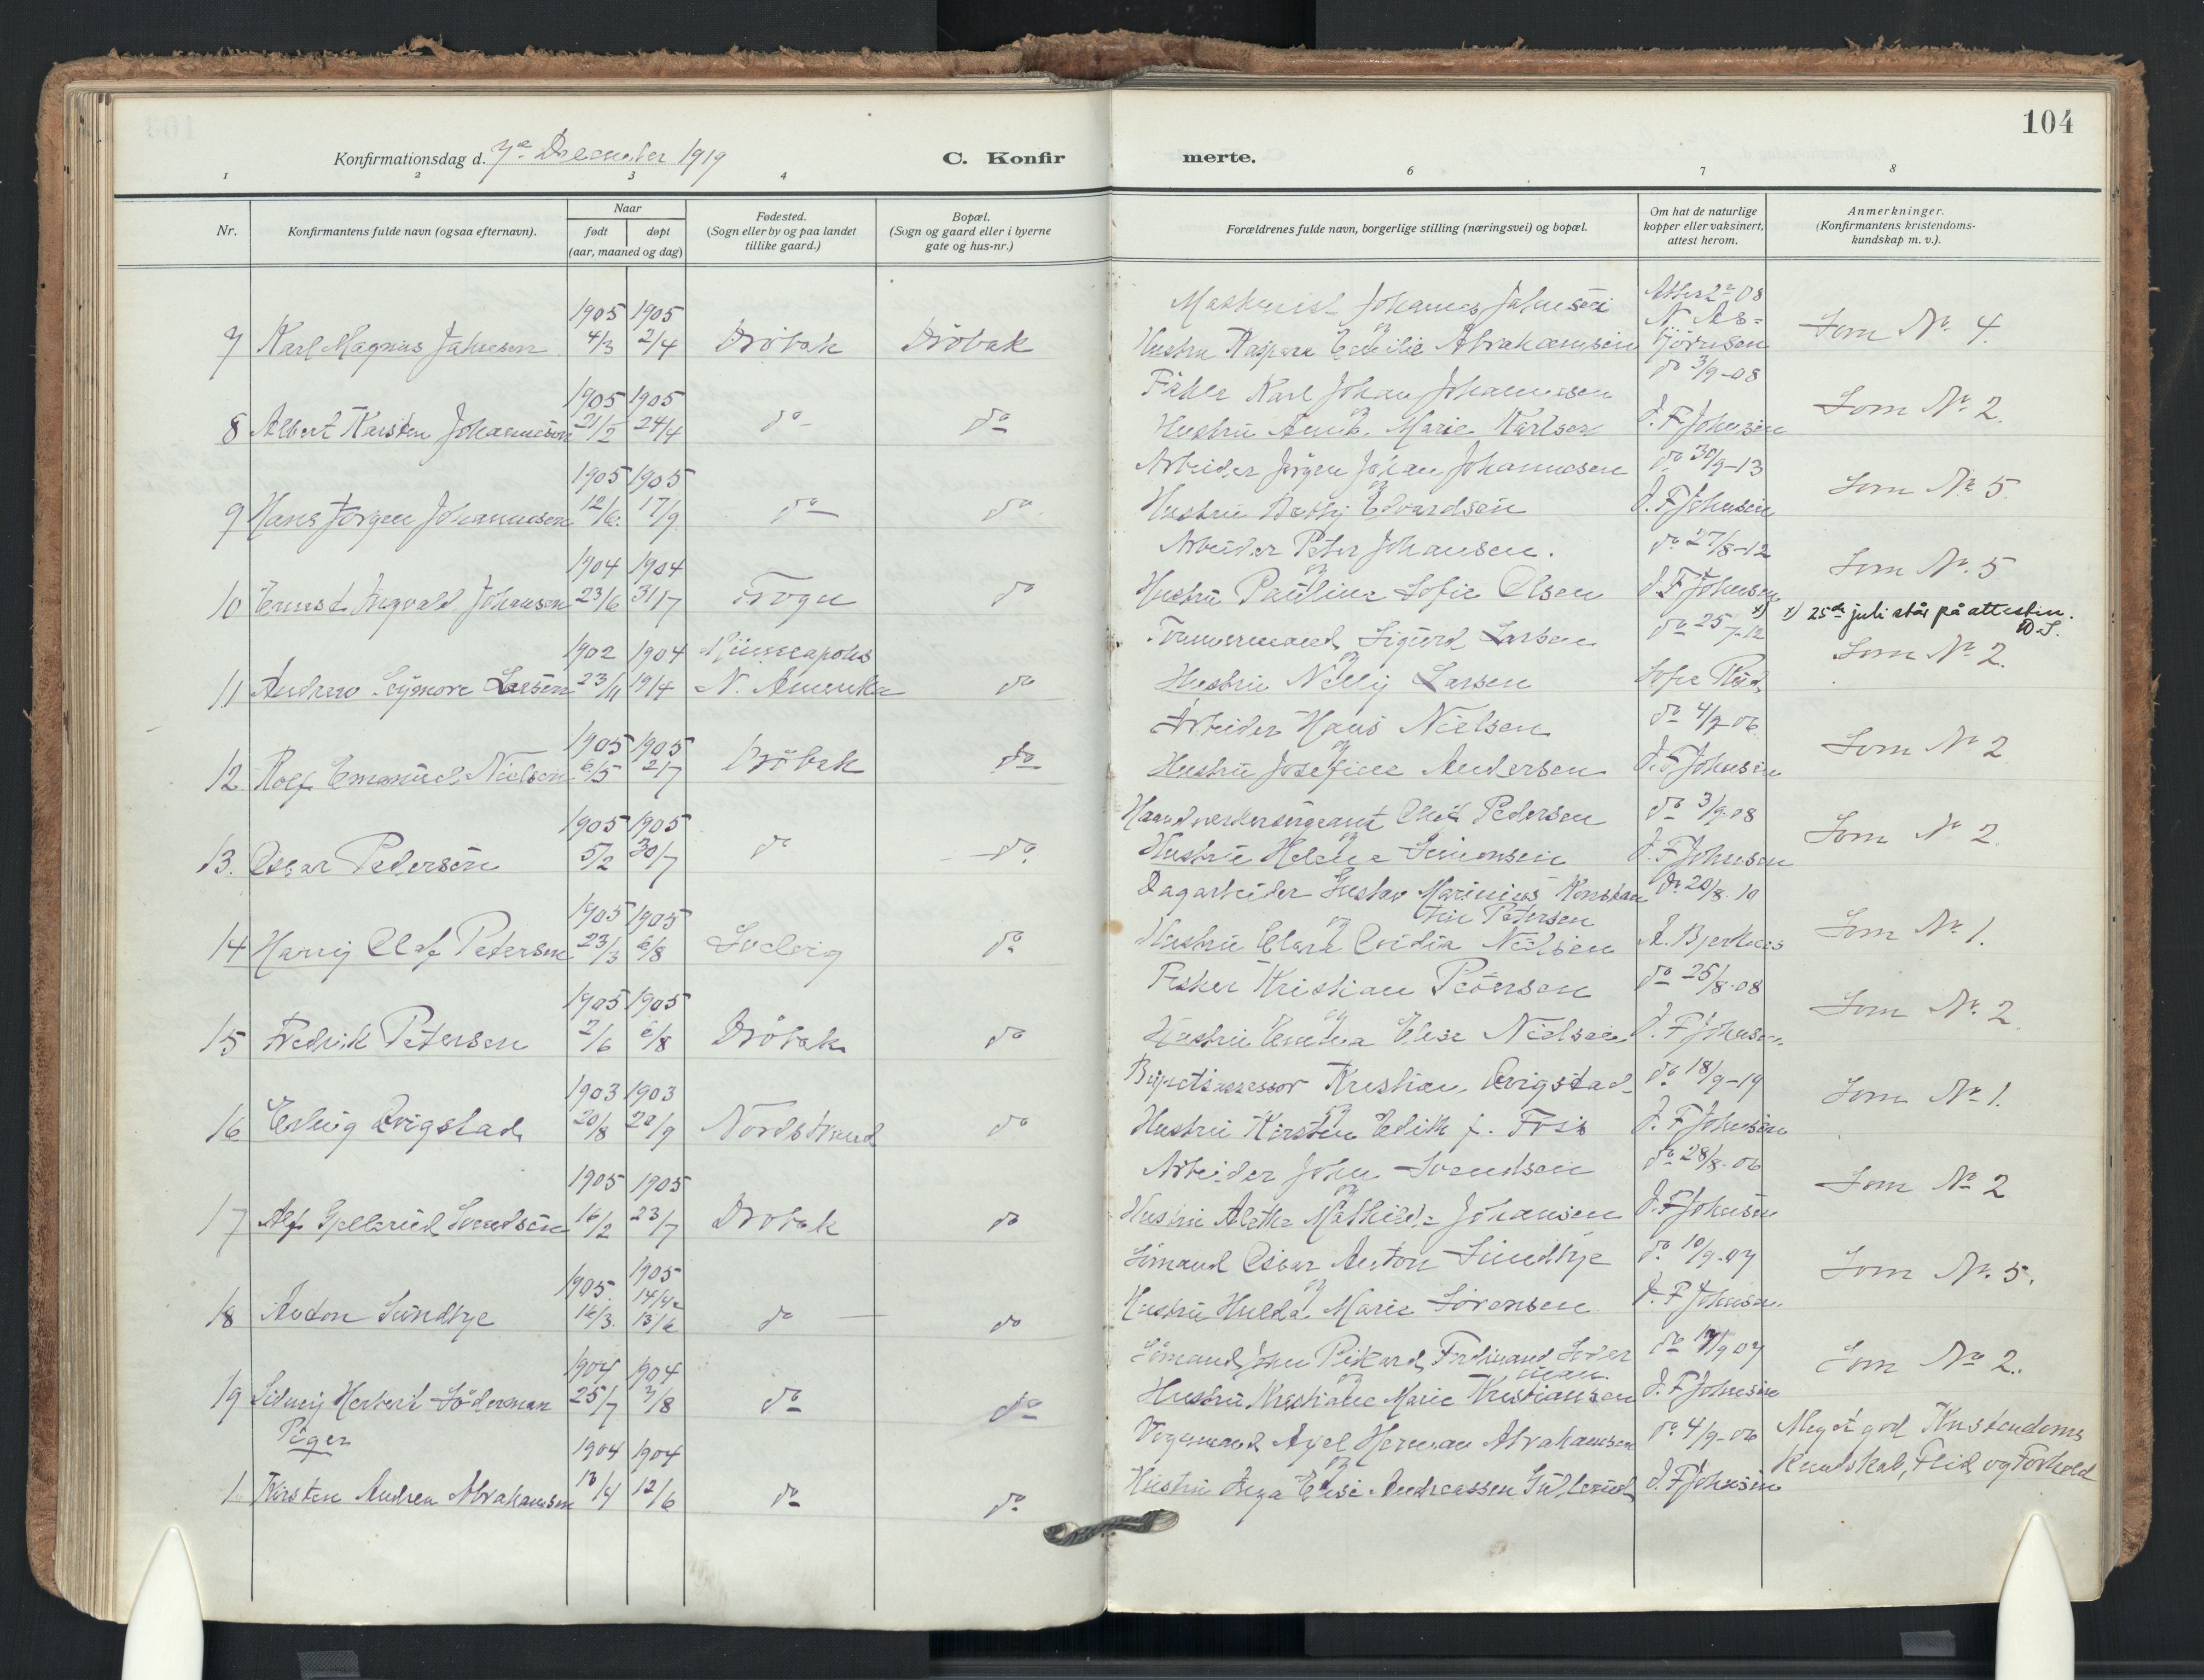 104
Konfirmationsdag d. 7de December 1919
C. Konfir
merte.
1 2 3 4 6 7 8
Nr.
Konfirmantens fulde navn (ogsaa efternavn).
Naar
født
døpt
(aar, maaned og dag)
Fødested.
(Sogn eller by og paa landet
tillike gaard.)
Bopæl.
(Sogn og gaard eller i byerne
gate og hus-nr.)
Forældrenes fulde navn, borgerlige stilling (næringsvei) og bopæl.
Om hat de naturlige
kopper eller vaksinert,
attest herom.
Anmerkninger.
(Konfirmantens kristendoms-
kundskap m. v.).
1905 1905 Maskinist Johannes Jahnsen
7 Karl Magnus Jahnsen 4/3 2/4 Drøbak Drøbak og Hustru Kaspara Emilie Abrahamsen Som No. 4.
1905 1905 Fisker Karl Johan Johannesen do 3/9-08
8 Albert Karsten Johannesen 21/2 24/4 do do og Hustru Marie Karlsen J. F Johnsen Som No 2.
1905 1905 Arbeider Jørgen Johan Johannesen do 30/9-13
9 Hans Jørgen Johannesen 12/6. 17/9 do do og Hustru Edvardsen J. F Johnsen Som No 5.
1904 1904 Arbeider Peter Johansen. do 27/8-12
10 Ernst Ingvald Johansen 23/6 31/7 Frogn do og Hustru Pauline Sofie Olsen J. F Johnsen Som No. 5
x) 25de juli står på attesten.
D.S.
1902 1904 Minneapolis Tømmermand Sigurd Larsen do 25/7-12 x)
11 Andrew Seymore Larsen 23/11 19/4 N. Amerika do og Hustru Nelly Larsen Sofie Som No 2.
1905 1905 Arbeider Hans Nielsen do 4/9-06
12 Rolf Emanuel Nielsen 6/5 2/7 Drøbak do og Hustru Josefine Andersen J. F Johnsen Som No 2
1905 1905 Haandverkersergeant Olaf Pedersen do 3/9-08
13. Oscar Pedersen 5/2 30/7 do do og Hustru Helene Simonsen J. F Johnsen Som No 2.
1905 1905 Dagarbeider Gustav Marinius Konstan do 20/8-19
tin Petersen
14 Harry Olaf Petersen 23/3 6/8 Solvig do og Hustru Clara Ovidia Nielsen A. Bjerknes Som No 1.
1905 1905 Fisker Kristian Petersen do 25/8-08
15 Fredrik Petersen 2/6 6/8 Drøbak do og Hustru Emma Elise Nielsen J. F Johnsen Som No. 2.
1903 1903 Byretsassessor Kristian Qvigstad do 18/9-19
16 Erling Qvigstad 20/8 20/9 Nordstrand do og Hustru Kirsten Edith f. Friis J. F Johnsen Som No 1.
1905 1905 Arbeider John Svendsen do 28/8-06
17 Alf Gjellerud Svendsen 16/2 23/7 Drøbak do og Hustru Alethe Mathilde Johansen J. F Johnsen Som No 2
1905. 1905 Sømand Oscar Anton Sundbye do 10/9-07
14/4 =
18 Anton Sundbye 16/3. 13/6 do do og Hustru Hulda Marie Sørensen J. F Johnsen Som No. 5.
1904 1904 Sømand John Rikard Ferdinand Søder do 9 07
man.
19 Sidney Herbert Søderman 25/7 7/8 do do Hustru Kristiane Marie Kristiansen J. F Johnsen Som No 2.
Piger
1904 1904 Vognmand Axel Herman Abrahamsen do 4/9-06 Meget god Kristendoms
1 Kirsten Andrea Abrahamsen 13/4 12/6 do do og Hustru Inga Elise Andreassen J. F Johnsen Kundskab, Flid og Forhold